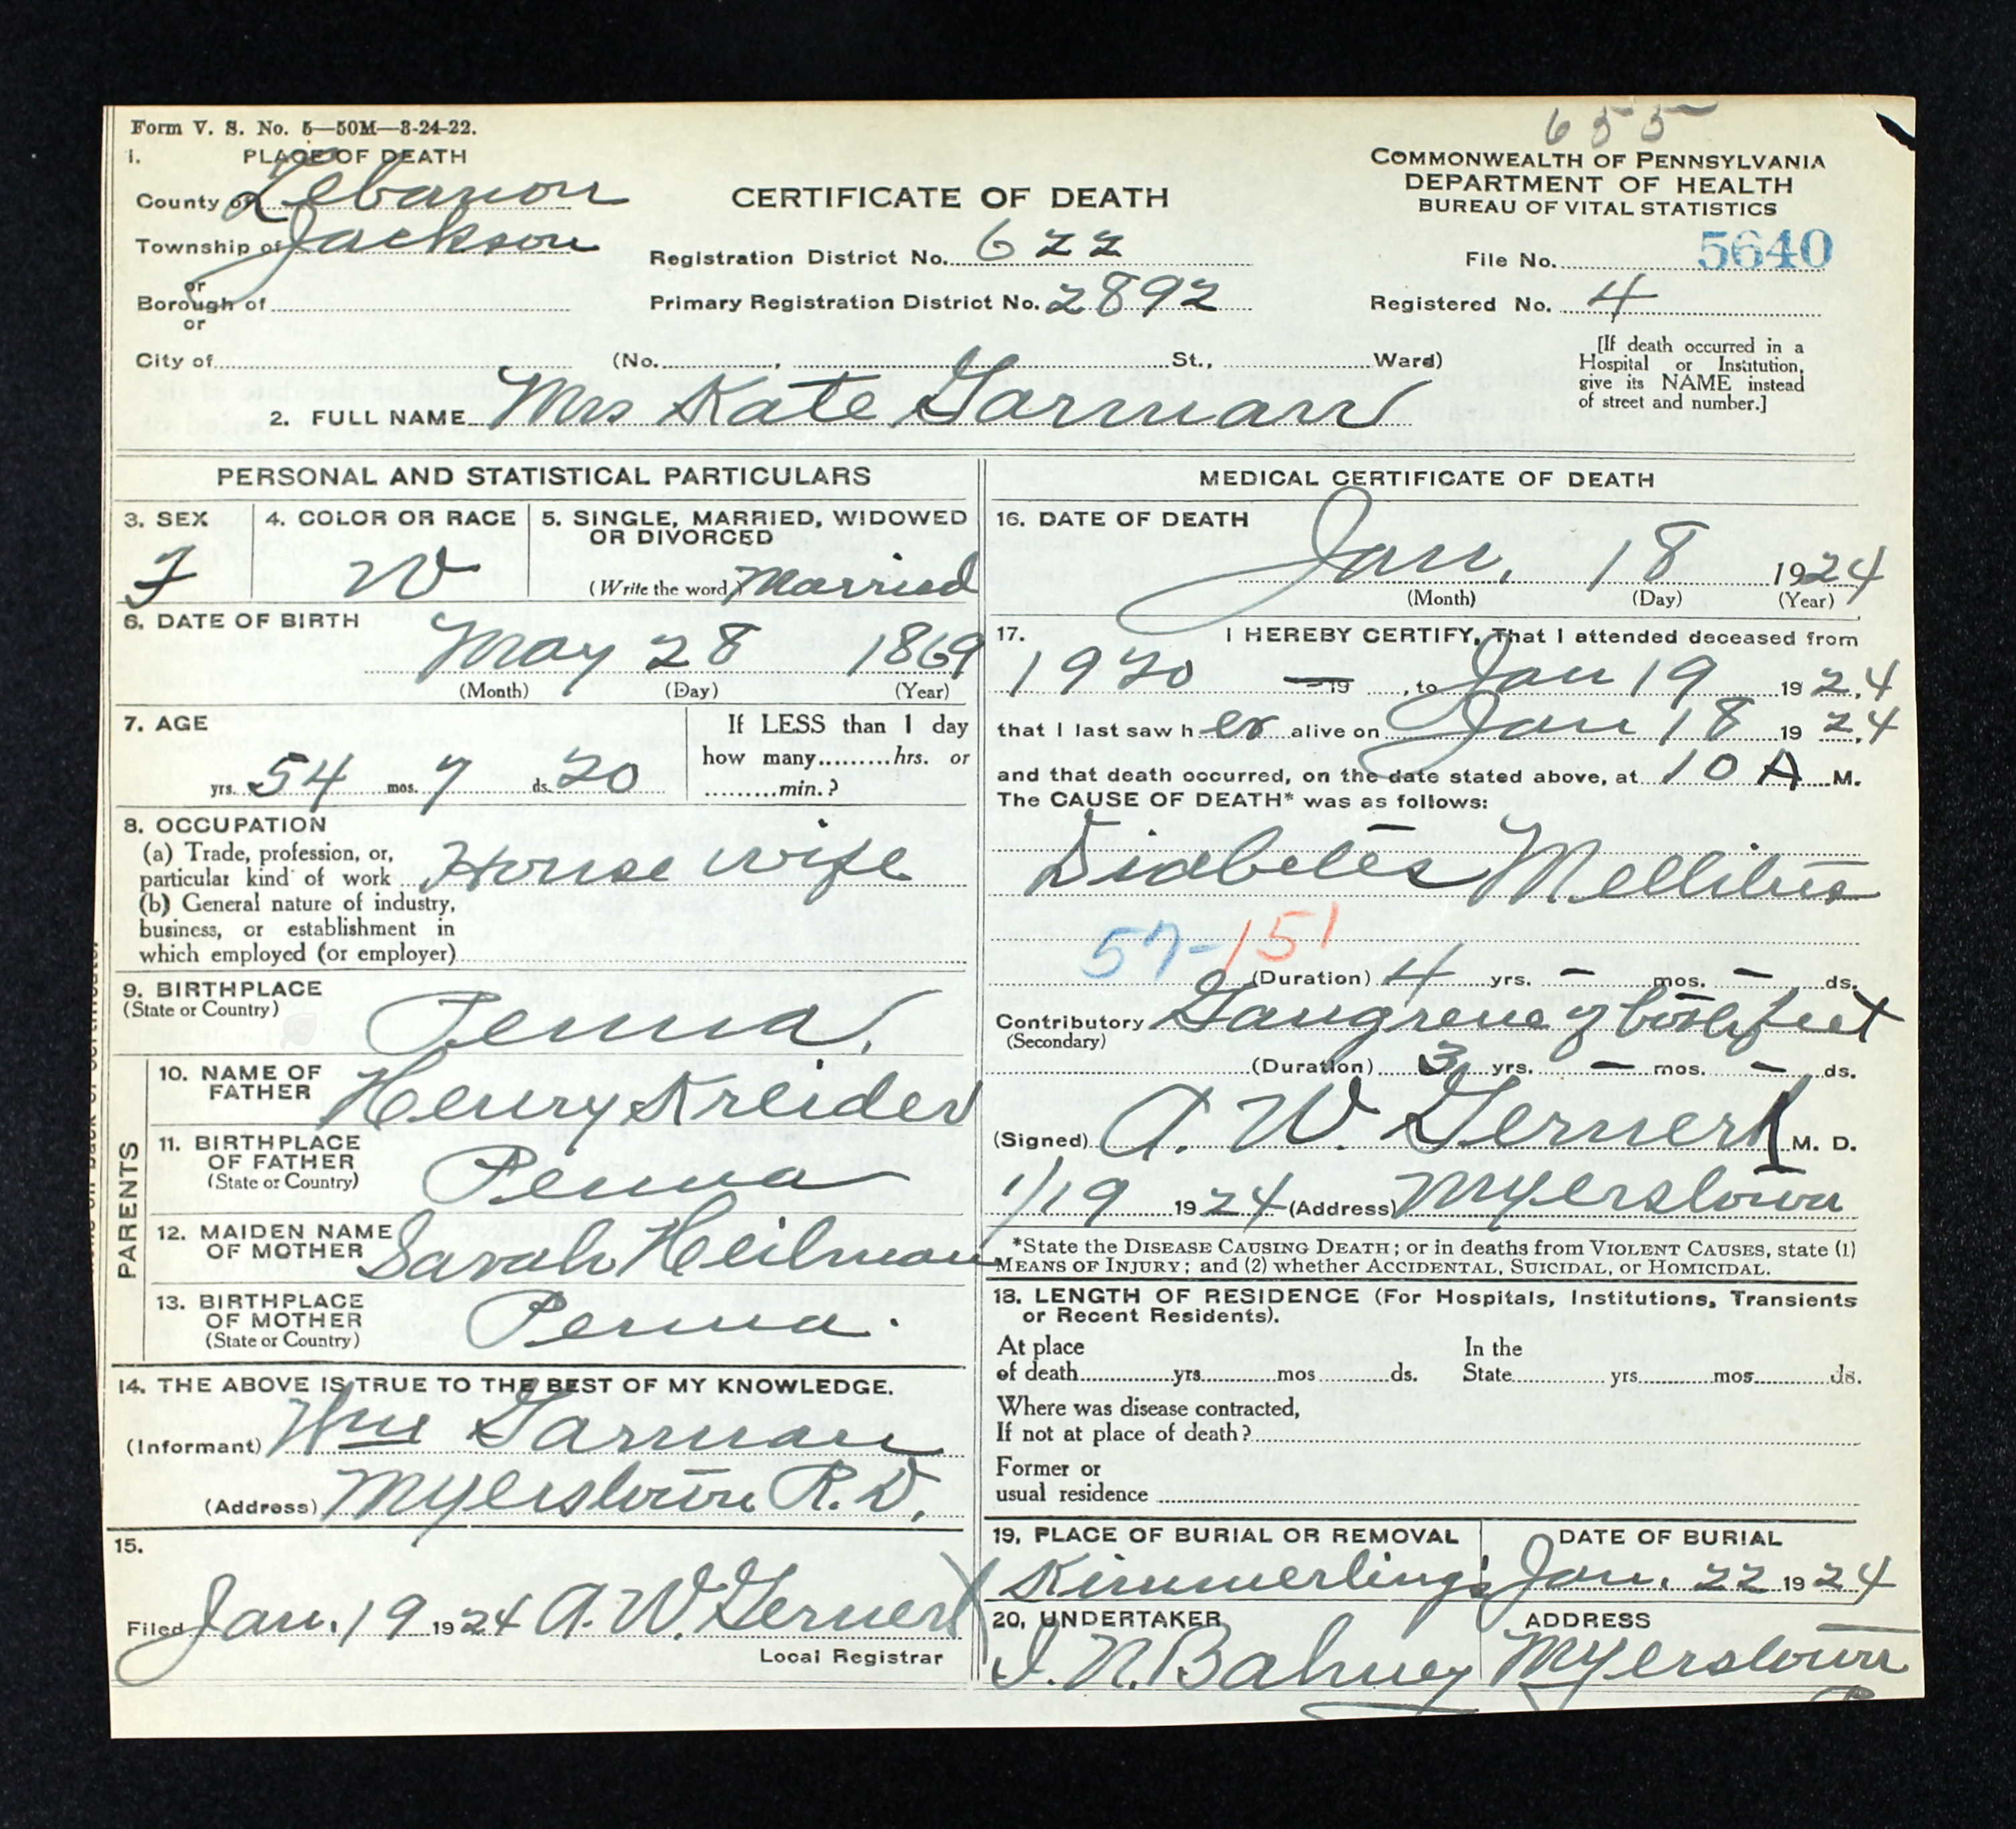 655
Form V. S. No. 5—50M—8-24-22.
1. PLACE OF DEATH
County of Lebanon
Township of Jackson
or
Borough of
or
City of (No. , St., Ward)
CERTIFICATE OF DEATH
Registration District No. 622
Primary Registration District No. 2892
COMMONWEALTH OF PENNSYLVANIA
DEPARTMENT OF HEALTH
BUREAU OF VITAL STATISTICS
File No. 5640
Registered No. 4
[If death occurred in a
Hospital or Institution,
give its NAME instead
of street and number.]
2. FULL NAME Mrs Kate Garman
PERSONAL AND STATISTICAL PARTICULARS
3. SEX
F
4. COLOR OR RACE
W
5. SINGLE, MARRIED, WIDOWED
OR DIVORCED
(Write the word) Married
6. DATE OF BIRTH
May 28 1869
(Month) (Day) (Year)
7. AGE
yrs. 54 mos. 7 ds. 20
If LESS than 1 day
how many.........hrs. or
.........min.?
8. OCCUPATION
(a) Trade, profession, or,
particular kind of work House wife
(b) General nature of industry,
business, or establishment in
which employed (or employer)
9. BIRTHPLACE
(State or Country)
Penna.
PARENTS
10. NAME OF
FATHER
Henry Kreider
11. BIRTHPLACE
OF FATHER
(State or Country)
Penna
12. MAIDEN NAME
OF MOTHER
Sarah Heilman
13. BIRTHPLACE
OF MOTHER
(State or Country)
Penna.
14. THE ABOVE IS TRUE TO THE BEST OF MY KNOWLEDGE.
(Informant) Wm Garman
(Address) Myerstown R.D.
15.
Filed Jan. 19 1924 A. W. Gernert
Local Registrar
MEDICAL CERTIFICATE OF DEATH
16. DATE OF DEATH
Jan. 18 1924
(Month) (Day) (Year)
17. I HEREBY CERTIFY, That I attended deceased from
1920 19 , to Jan 19 1924
that I last saw her alive on Jan 18 1924
and that death occurred, on the date stated above, at 10 A M.
The CAUSE OF DEATH* was as follows:
Diabetes Mellitus
57-151
(Duration) 4 yrs. — mos. — ds.
Contributory Gangrene of both feet
(Secondary)
(Duration) 3 yrs. — mos. — ds.
(Signed) A. W. Gernert M. D.
1/19 1924 (Address) Myerstown
*State the DISEASE CAUSING DEATH; or in deaths from VIOLENT CAUSES, state (1)
MEANS OF INJURY; and (2) whether ACCIDENTAL, SUICIDAL, or HOMICIDAL.
18. LENGTH OF RESIDENCE (For Hospitals, Institutions, Transients
or Recent Residents).
At place
of death yrs. mos. ds.
In the
State yrs. mos. ds.
Where was disease contracted,
If not at place of death?
Former or
usual residence
19. PLACE OF BURIAL OR REMOVAL
Kimmerling's
DATE OF BURIAL
Jan. 22 1924
20. UNDERTAKER
I. N. Bahney
ADDRESS
Myerstown